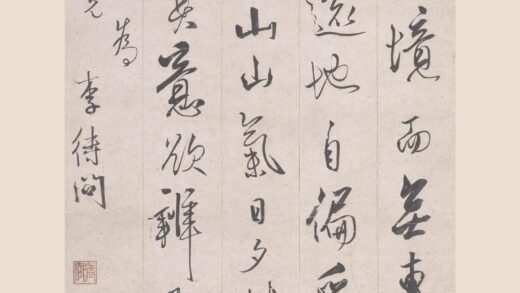 境而無車
遠地自偏采
山山氣日夕
真意欲
為
李待問